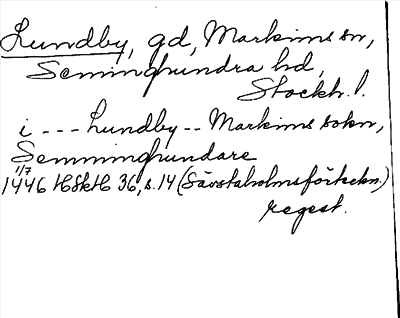 Lundby, gd, Markims sn,
Seminghundra hd,
Stockh. l.
i --- Lundby -- Markims sokn,
Semminghundare
1/7
1446 HSkH 36, s. 14 (Sävstaholmsförteckn.)
regest.